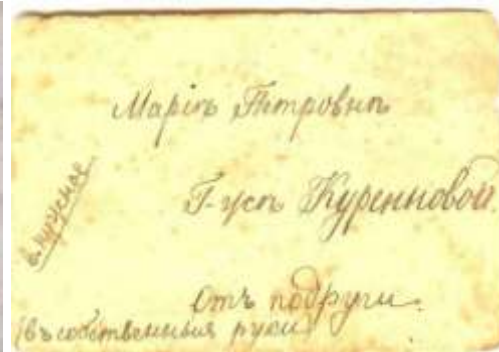 Маріѣ Петровнѣ
Г-жѣ Куренновой.
отъ подруги.
(въ собственныя руки)